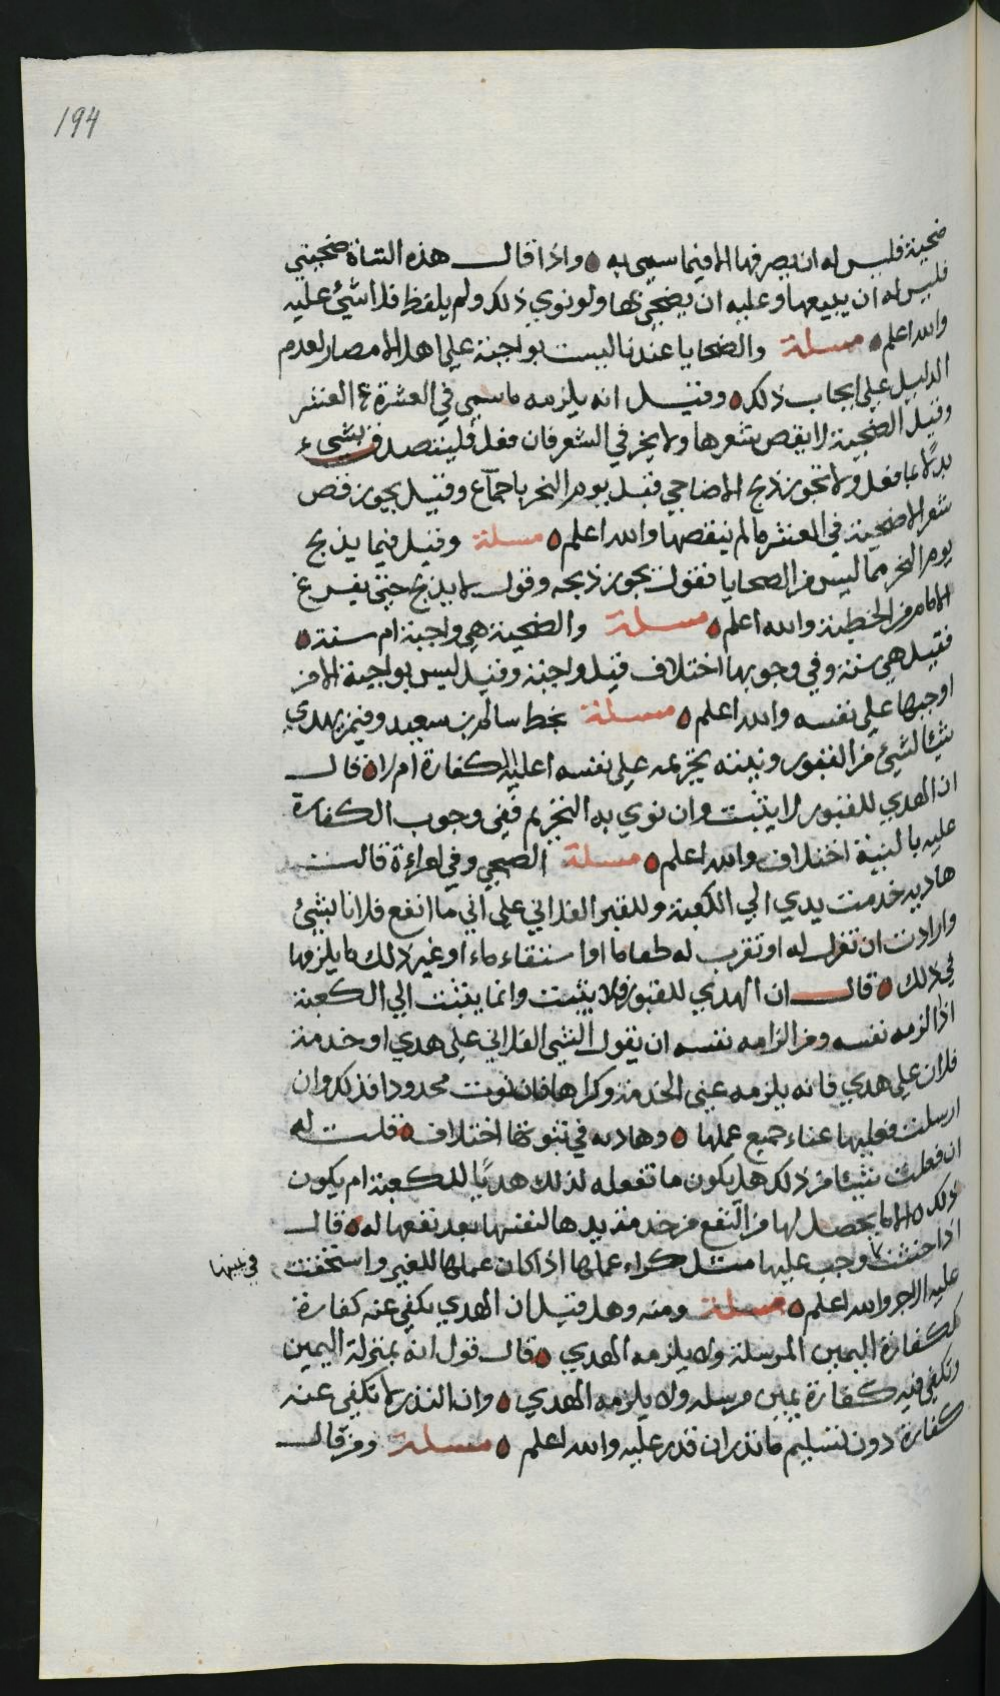 194
ضحية فليس له ان يصرفها الا فيما سمي به ه واذا قال هذه الشاة ضحيتي
فليس له ان يبيعها وعليه ان يضحي بها ولو نوي ذلك ولم يلفظ فلا شيئ عليه
والله اعلم ه مسلة والضحايا عندنا ليست بواجبة علي اهل الامصار لعدم
الدليل علي ايجاب ذلك ه وقيل انه يلزمه ما سمي في العشرة العشر
وقيل الضحية لا يقص شعرها ولا يجز في الشعر فان فعل فليتصدق بشيء
بدلا عما فعل ولا تجوز ذبح الاضاحي قبل يوم النحر باجماع وقيل يجوز قص
شعر الاضحية في العشر ما لم ينقصها والله اعلم ه مسلة وقيل فيما يذبح
يوم النحر مما ليس من الضحايا فقول يجوز ذبحه وقول لا يذبح حتي يفرغ
الامام من الخطبة والله اعلم ه مسلة والضحية هي واجبة ام سنة ه
فقيل هي سنة وفي وجوبها اختلاف قيل واجبة وقيل ليس بواجبة الا من
اوجبها علي نفسه والله اعلم ه مسلة بخط سالم بن سعيد وفيمن يهدي
شيئا لشيئ من القبور ونيته يحرمه علي نفسه اعليه كفارة ام لا ه قال
ان الهدي للقبور لا يثبت وان نوي به التحريم ففي وجوب الكفارة
عليه بالنية اختلاف والله اعلم ه مسلة الصبحي وفي امراءة قالت
هاديه خدمت يدي الي الكعبة وللقبر الفلاني علي اني ما انفع فلانا بشيئ
وارادت ان تغزل له او تقرب له طعاما او استقاء ماء او غير ذلك ما يلزمها
في ذلك ه قال ان الهدي للقبور فلا يثبت وانما يثبت الي الكعبة
اذا الزمه نفسه ومن الزامه نفسه ان يقول الشي الفلاني علي هدي او خدمة
فلان علي هدي فانه يلزمه عني الخدمة وكراها فان نوت محدودا فذلك وان
ارسلت فعليها عناء جميع عملها ه وهاديه في ثبوتها اختلاف ه قلت له
ان فعلت شيئا من ذلك هل يكون ما تفعله لذلك هديا للكعبة ام يكون
ذلك الا ما يحصل لها من النفع من خدمة يدها لنفسها بعد نفعها له ه قال
اذا حنثت وجب عليها مثل كراء عملها اذا كان عملها للغير واستحقت
في يمينها
عليه الاجر والله اعلم ه مسلة ومنه وهل قيل ان الهدي يكفي عنه كفارة
ككفارة اليمين المرسلة ولا يلزمه الهدي ه قال قول انه بمنزلة اليمين
وتكفي فيه كفارة يمين مرسله ولا يلزمه الهدي ه وان النذر لا تكفي عنه
كفارة دون تسليم ما نذر ان قدر عليه والله اعلم ه مسلة ومن قال